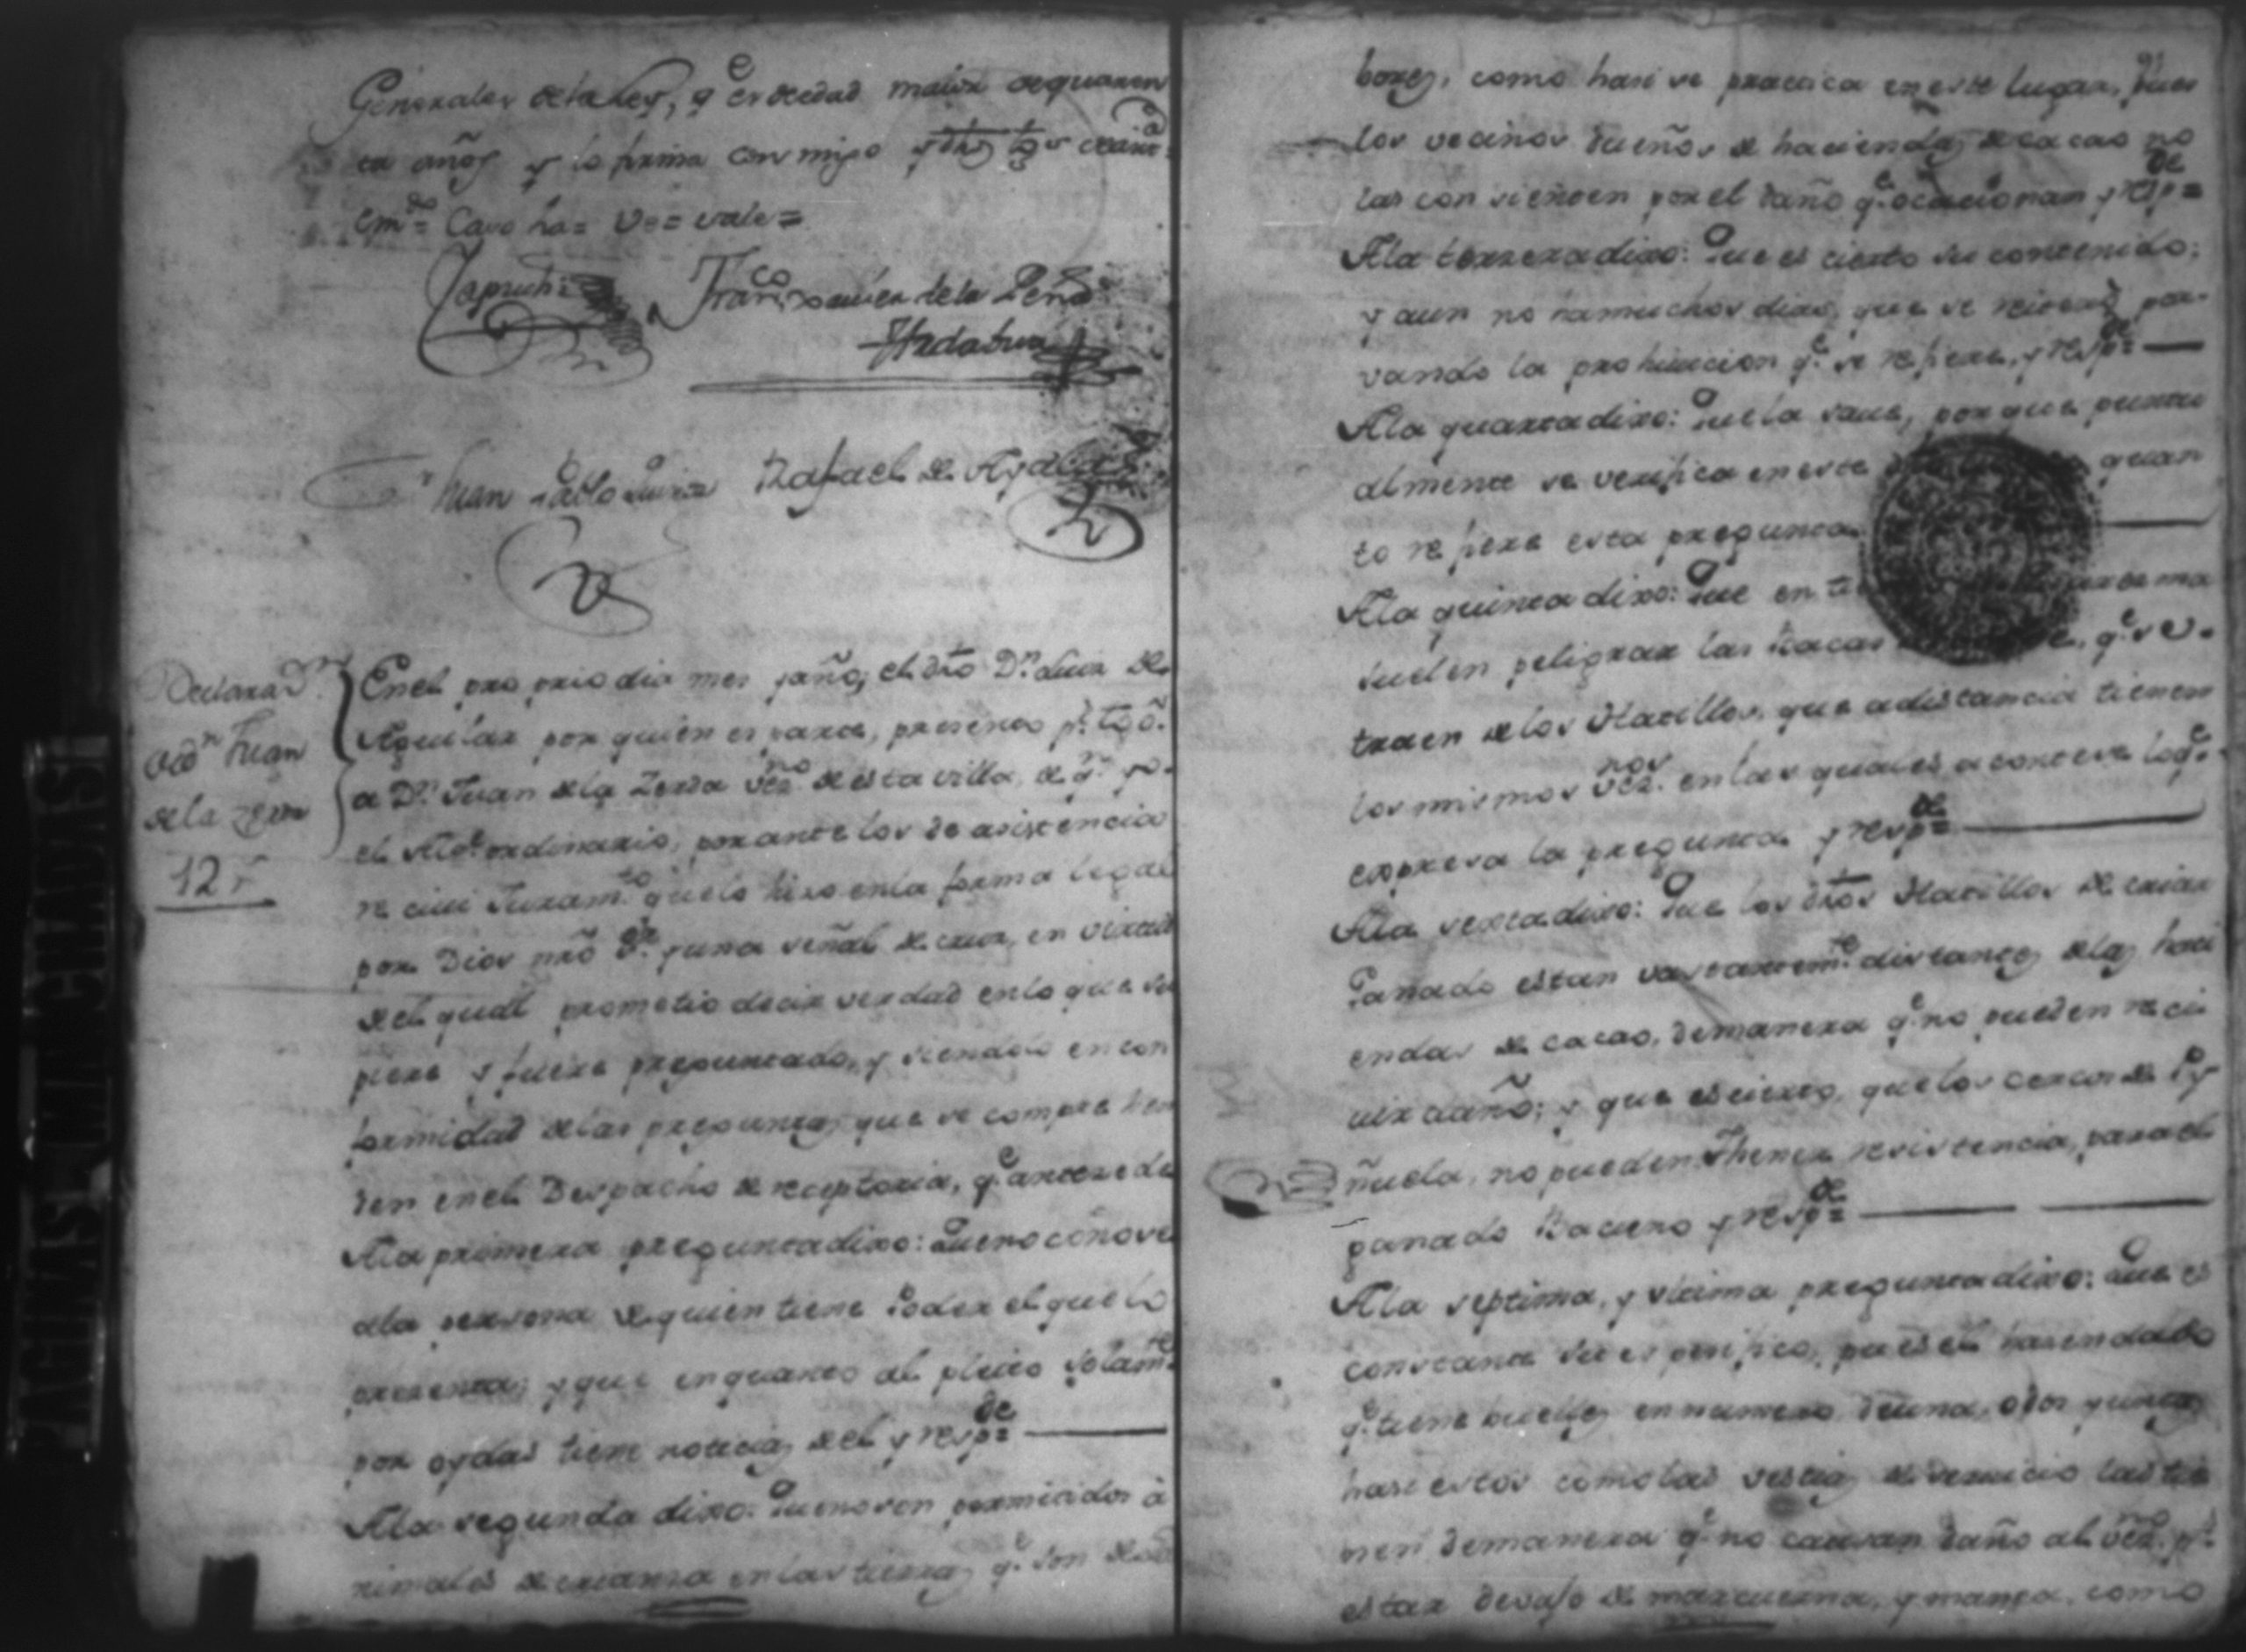 Generales dela Ley, q^e es deedad maior dequaren
ta años y lo firma con migo y dhos tgos
Em^do = Cavo ha = Vo = vale =
Fran^co Xavier de la Peña
Juan Pablo Rafael de Ayala
Declaraz^n
de d^n Juan
dela Zerda
12 r
En el proprio dia mes y año, el dho D^n Luis de
Aguilar por quien es parte, presento p^r tgo
a D^n Juan dela Zerda vez^no de esta villa, de q^n yo
el Alc^e ordinario, por ante los de asistencia
reciui Juram^to que lo hizo en la forma legal
por Dios nrõ S^r y una señal de cruz, en virtud
del qual prometio decir verdad en lo que su
piere y fuere preguntado, y siendolo en con
formidad delas preguntas, que se comprehen
den en el Despacho de receptoria, q^e antecede
Ala primera pregunta dixo: Que no conose
ala persona de quien tiene Poder el que lo
presenta; y que en quanto al pleito solam^te
por oydas tiene noticias del y resp^de =
Ala segunda dixo: Que no son permitidos a
nimales de crianza en las tierras q^e son de
bores, como hasi se practica en este lugar, pues
los vecinos dueños de haciendas de cacao no
las consienten por el daño q^e ocacionan y resp^de =
Ala terzera dixo: Que es cierto su contenido;
y aun no ha muchos dias, que se
vando la prohiuicion q^e se refiere, y resp^de =
Ala quarta dixo: Que la saue, por que puntu
almente se verifica en este quan
to refiere esta pregunta
Ala quinta dixo: Que en
suelen peligrar las Bacas q^e se
traen de los Hatillos, que a distancia tienen
los mismos vez^nos en las quales acontese loq^e
expresa la pregunta y resp^de =
Ala sexta dixo: Que los dhos Hatillos de criar
Ganado estan vastantem^te distantes delas haci
endas de cacao, de manera q^e no pueden reci
uir daño; y que es cierto, que los cercos de Py
ñuela, no pueden thener resistencia, para el
ganado Bacuno y resp^de =
Ala septima, y vltima pregunta dixo: Que es
constante su expecifico, pues el hasendado
q^e tiene bueyes en numero de una, o dos yuntas
hasi estos como las vestias de seruicio las tie
nen de manera q^e no causan daño al vez^no p^r
estar devajo de mancuerna, y manea, como